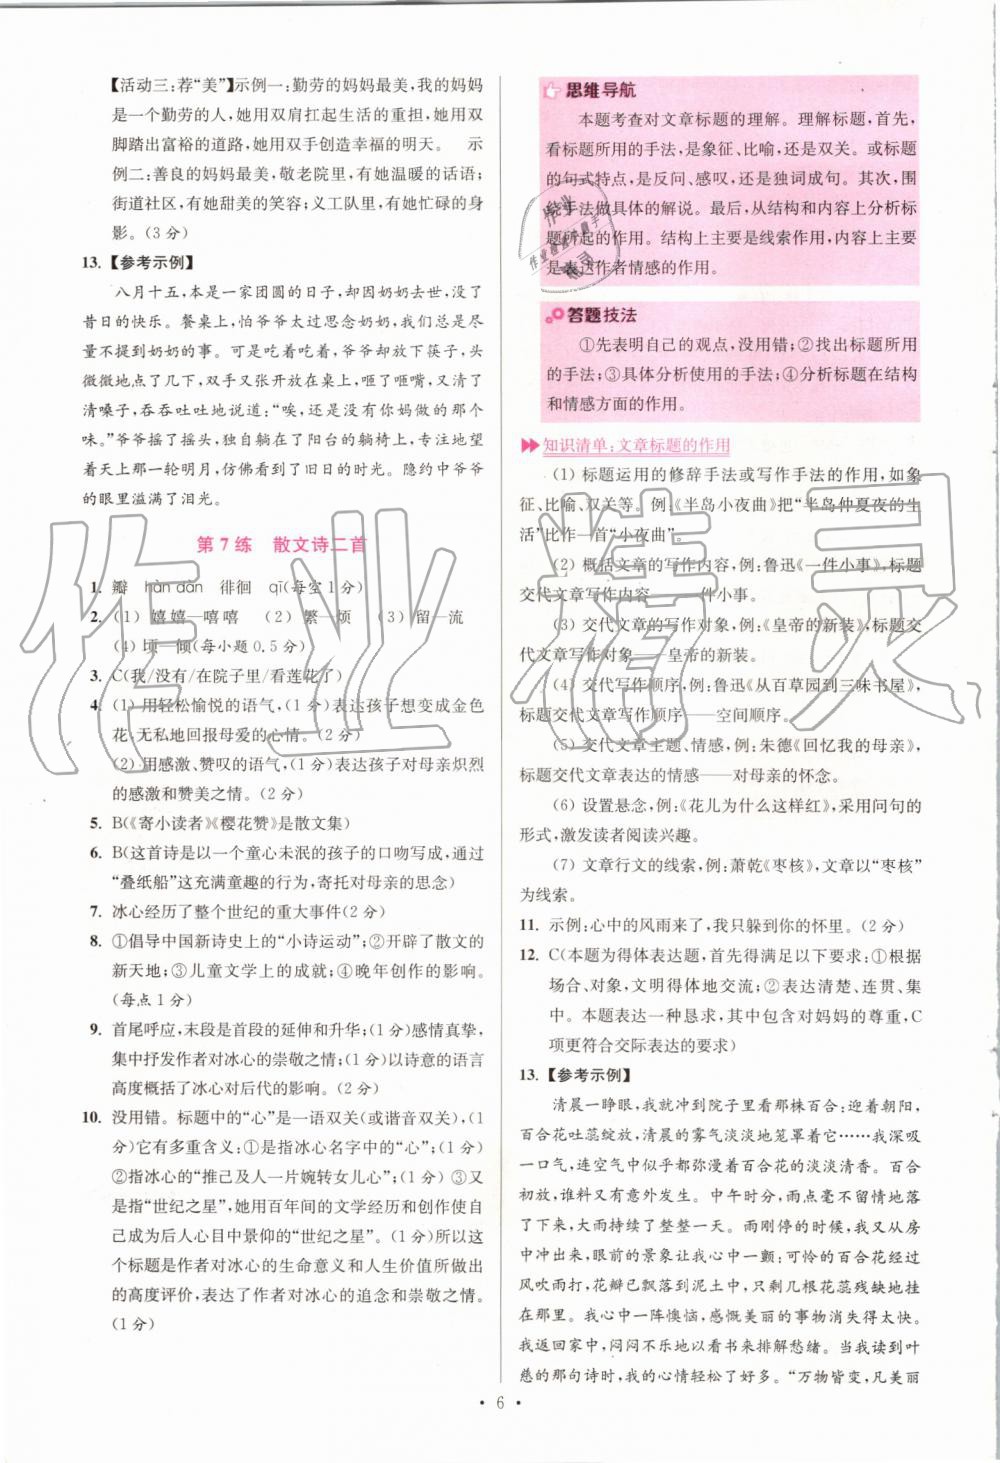 【活动三:荐“美”】示例一:勤劳的妈妈最美,我的妈妈
是一个勤劳的人,她用双肩扛起生活的重担,她用双
脚踏出富裕的道路,她用双手创造幸福的明天。 示
例二:善良的妈妈最美,敬老院里,有她温暖的话语;
街道社区,有她甜美的笑容;义工队里,有她忙碌的身
影。(3 分)
13. 【参考示例】
八月十五,本是一家团圆的日子,却因奶奶去世,没了
昔日的快乐。餐桌上,怕爷爷太过思念奶奶,我们总是尽
量不提到奶奶的事。可是吃着吃着,爷爷却放下筷子,头
微微地点了几下,双手又张开放在桌上,咂了咂嘴,又清了
清嗓子,吞吞吐吐地说道:“唉,还是没有你妈做的那个
味。”爷爷摇了摇头,独自躺在了阳台的躺椅上,专注地望
着天上那一轮明月,仿佛看到了旧日的时光。隐约中爷爷
的眼里溢满了泪光。
第 7 练 散文诗二首
1. 瓣 hàn dàn 徘徊 qī(每空 1 分)
2. (1) 嬉嬉—嘻嘻 (2) 繁—烦 (3) 留—流
(4) 顷—倾(每小题 0.5 分)
3. C(我/没有/在院子里/看莲花了)
4. (1) 用轻松愉悦的语气,(1 分)表达孩子想变成金色
花,无私地回报母爱的心情。(2 分)
(2) 用感激、赞叹的语气,(1 分)表达孩子对母亲炽烈
的感激和赞美之情。(2 分)
5. B(《寄小读者》《樱花赞》是散文集)
6. B(这首诗是以一个童心未泯的孩子的口吻写成,通过
“叠纸船”这充满童趣的行为,寄托对母亲的思念)
7. 冰心经历了整个世纪的重大事件(2 分)
8. ①倡导中国新诗史上的“小诗运动”;②开辟了散文的
新天地;③儿童文学上的成就;④晚年创作的影响。
(每点 1 分)
9. 首尾呼应,末段是首段的延伸和升华;(1 分)感情真挚,
集中抒发作者对冰心的崇敬之情;(1 分)以诗意的语言
高度概括了冰心对后代的影响。(2 分)
10. 没用错。标题中的“心”是一语双关(或谐音双关),(1
分)它有多重含义:①是指冰心名字中的“心”;(1 分)
②指冰心的“推己及人一片婉转女儿心”;(1 分)③又
是指“世纪之星”,她用百年间的文学经历和创作使自
己成为后人心目中崇敬的“世纪之星”。(1 分)所以这
个标题是作者对冰心的生命意义和人生价值所做出
的高度评价,表达了作者对冰心的追念和崇敬之情。
(1 分)
思维导航
本题考查对文章标题的理解。理解标题,首先,
看标题所用的手法,是象征、比喻,还是双关。或标题
的句式特点,是反问、感叹,还是独词成句。其次,围
绕手法做具体的解说。最后,从结构和内容上分析标
题所起的作用。结构上主要是线索作用,内容上主要
是表达作者情感的作用。
答题技法
①先表明自己的观点,没用错;②找出标题所用
的手法;③具体分析使用的手法;④分析标题在结构
和情感方面的作用。
知识清单:文章标题的作用
(1) 标题运用的修辞手法或写作手法的作用,如象
征、比喻、双关等。例:《半岛小夜曲》把“半岛仲夏夜的生
活”比作一首“小夜曲”。
(2) 概括文章的写作内容,例:鲁迅《一件小事》,标题
交代文章写作内容——一件小事。
(3) 交代文章的写作对象,例:《皇帝的新装》,标题交
代文章写作对象——皇帝的新装。
(4) 交代写作顺序,例:鲁迅《从百草园到三味书屋》,
标题交代文章写作顺序——空间顺序。
(5) 交代文章主题、情感,例:朱德《回忆我的母亲》,
标题交代文章表达的情感——对母亲的怀念。
(6) 设置悬念,例:《花儿为什么这样红》,采用问句的
形式,激发读者阅读兴趣。
(7) 文章行文的线索,例:萧乾《枣核》,文章以“枣核”
为线索。
11. 示例:心中的风雨来了,我只躲到你的怀里。(2 分)
12. C(本题为得体表达题,首先得满足以下要求:①根据
场合、对象,文明得体地交流;②表达清楚、连贯、集
中。本题表达一种恳求,其中包含对妈妈的尊重,C
项更符合交际表达的要求)
13. 【参考示例】
清晨一睁眼,我就冲到院子里看那株百合:迎着朝阳,
百合花吐蕊绽放,清晨的雾气淡淡地笼罩着它……我深吸
一口气,连空气中似乎都弥漫着百合花的淡淡清香。百合
初放,谁料又有意外发生。中午时分,雨点毫不留情地落
了下来,大雨持续了整整一天。雨刚停的时候,我又从房
中冲出来,眼前的景象让我心中一颤:可怜的百合花经过
风吹雨打,花瓣已飘落到泥土中,只剩几枝花蕊残缺地挂
在那里。我心中一阵懊恼,感慨美丽的事物消失得太快。
我返回家中,闷闷不乐地以看书来排解愁绪。当我读到叶
慈的那句诗时,我的心情轻松了好多。“万物皆变,凡美丽
· 6 ·
作业精灵